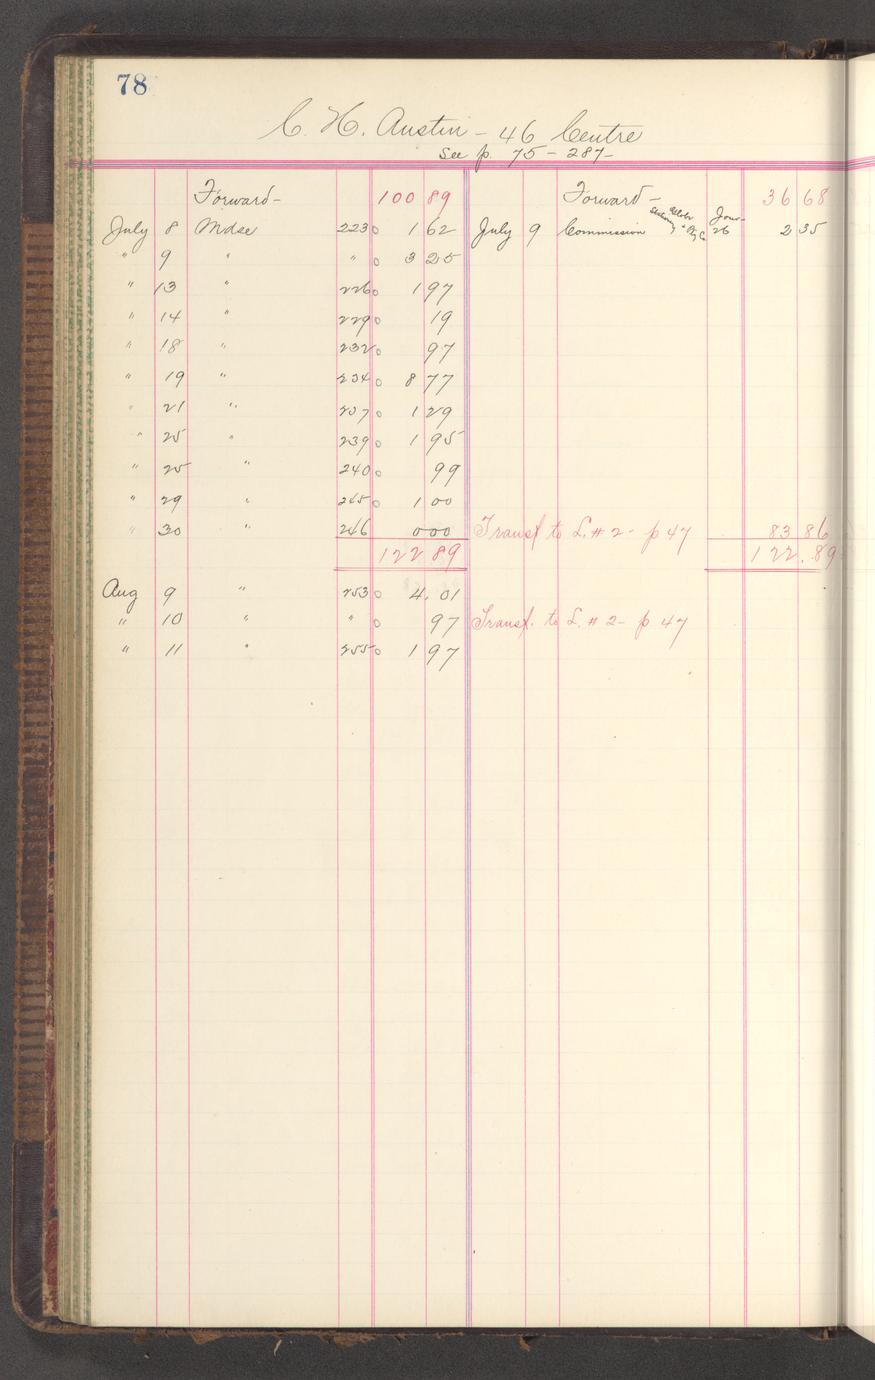 78
C. H. Austin - 46 Centre
See p. 75 - 287 -
Forward - 100 89 Forward - 36 68
July 8 Mdse 223 0 1 62 July 9 Commission Jour- 26 2 35
" 9 " " 0 3 25
" 13 " 226 0 1 97
" 14 " 229 0 19
" 18 " 232 0 97
" 19 " 234 0 8 77
" 21 " 237 0 1 29
" 25 " 239 0 1 95
" 25 " 240 0 99
" 29 " 245 0 1 00
" 30 " 246 0 00 Transf to L. # 2 - p 47 83 86
122 89 122.89
Aug 9 " 253 0 4.01
" 10 " " 0 97 Transf. to L. # 2 - p 47
" 11 " 255 0 1 97